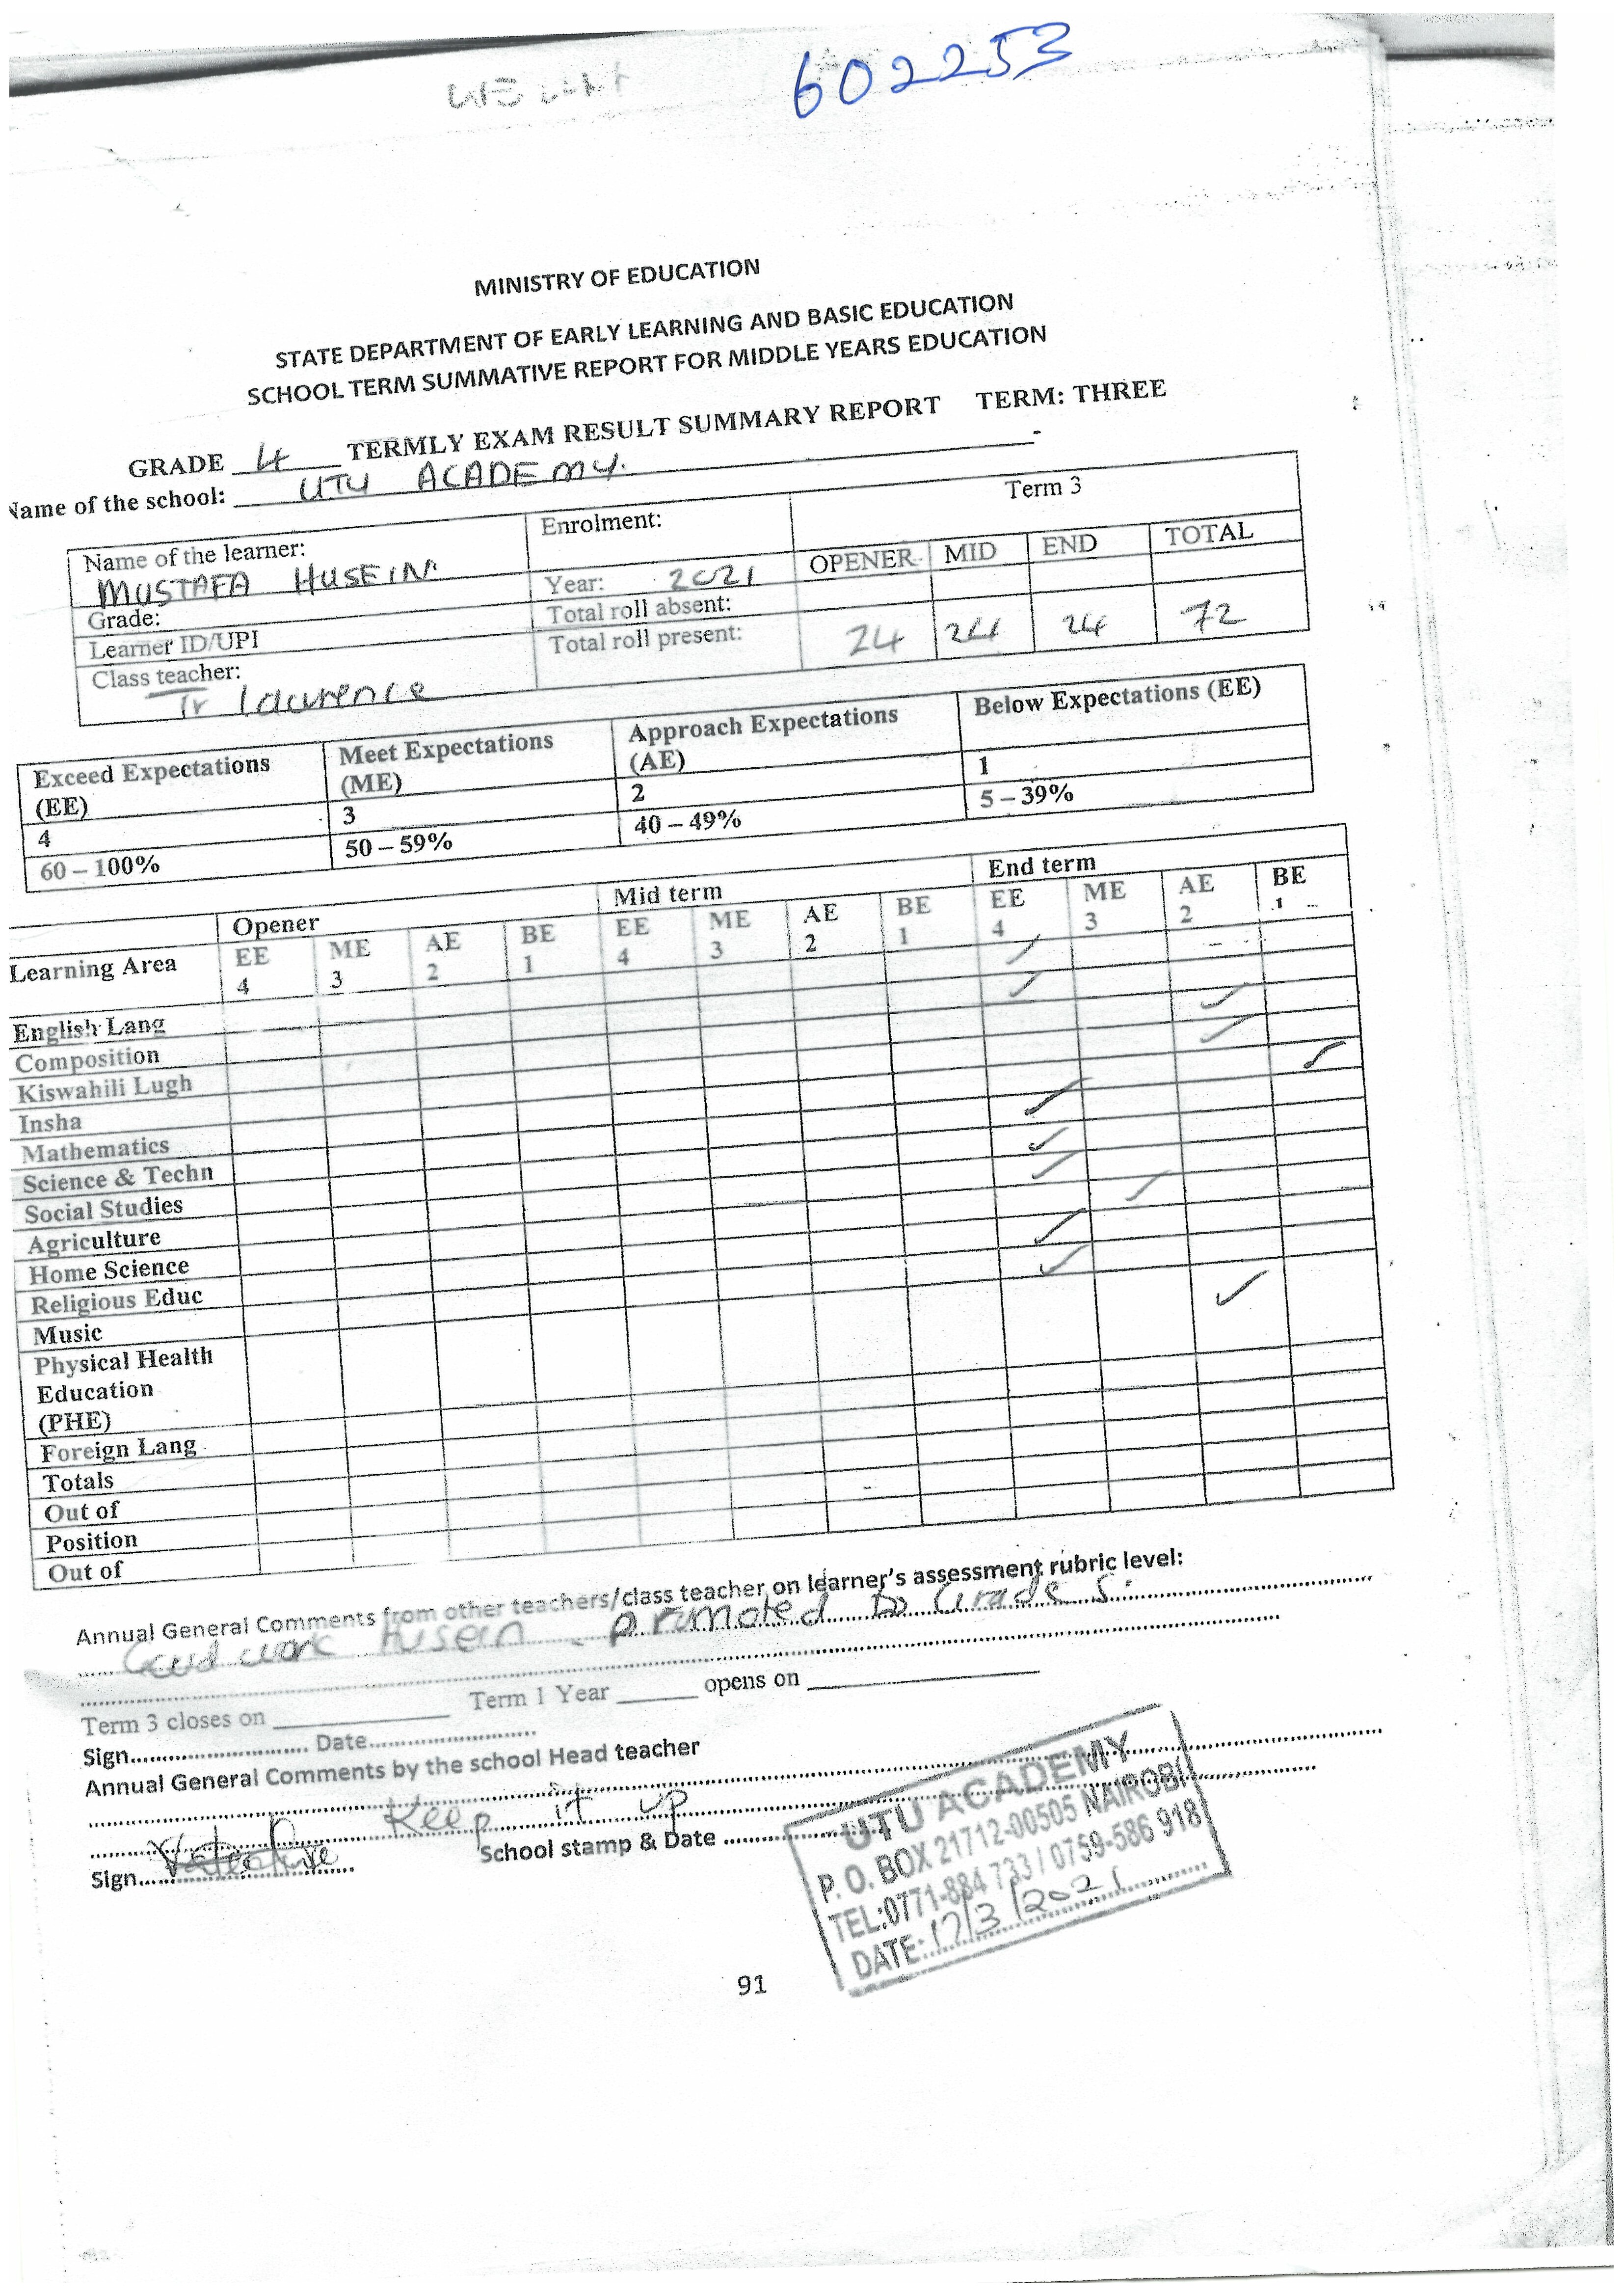 602253
MINISTRY OF EDUCATION
STATE DEPARTMENT OF EARLY LEARNING AND BASIC EDUCATION
SCHOOL TERM SUMMATIVE REPORT FOR MIDDLE YEARS EDUCATION
GRADE 4 TERMLY EXAM RESULT SUMMARY REPORT TERM: THREE
Name of the school: UTU ACADEMY.
Name of the learner: Enrolment: Term 3
MUSTAFA HUSEIN Year: 2021 OPENER MID END TOTAL
Grade: Total roll absent:
Learner ID/UPI Total roll present: 24 24 24 72
Class teacher:
Tr laurence
Exceed Expectations (EE) Meet Expectations (ME) Approach Expectations (AE) Below Expectations (EE)
4 3 2 1
60 – 100% 50 – 59% 40 – 49% 5 – 39%
Learning Area Opener Mid term End term
EE ME AE BE EE ME AE BE EE ME AE BE
4 3 2 1 4 3 2 1 4 3 2 1
English Lang
Composition
Kiswahili Lugh
Insha
Mathematics
Science & Techn
Social Studies
Agriculture
Home Science
Religious Educ
Music
Physical Health
Education
(PHE)
Foreign Lang
Totals
Out of
Position
Out of
Annual General Comments from other teachers/class teacher on learner's assessment rubric level:
Good work Husein - promoted to Grade 5.
Term 3 closes on Term 1 Year opens on
Sign Date
Annual General Comments by the school Head teacher
Keep it up
Sign School stamp & Date
UTU ACADEMY
P. O. BOX 21712-00505 NAIROBI
TEL:0771-884 733 / 0759-586 918
DATE: 17/3/2021
91